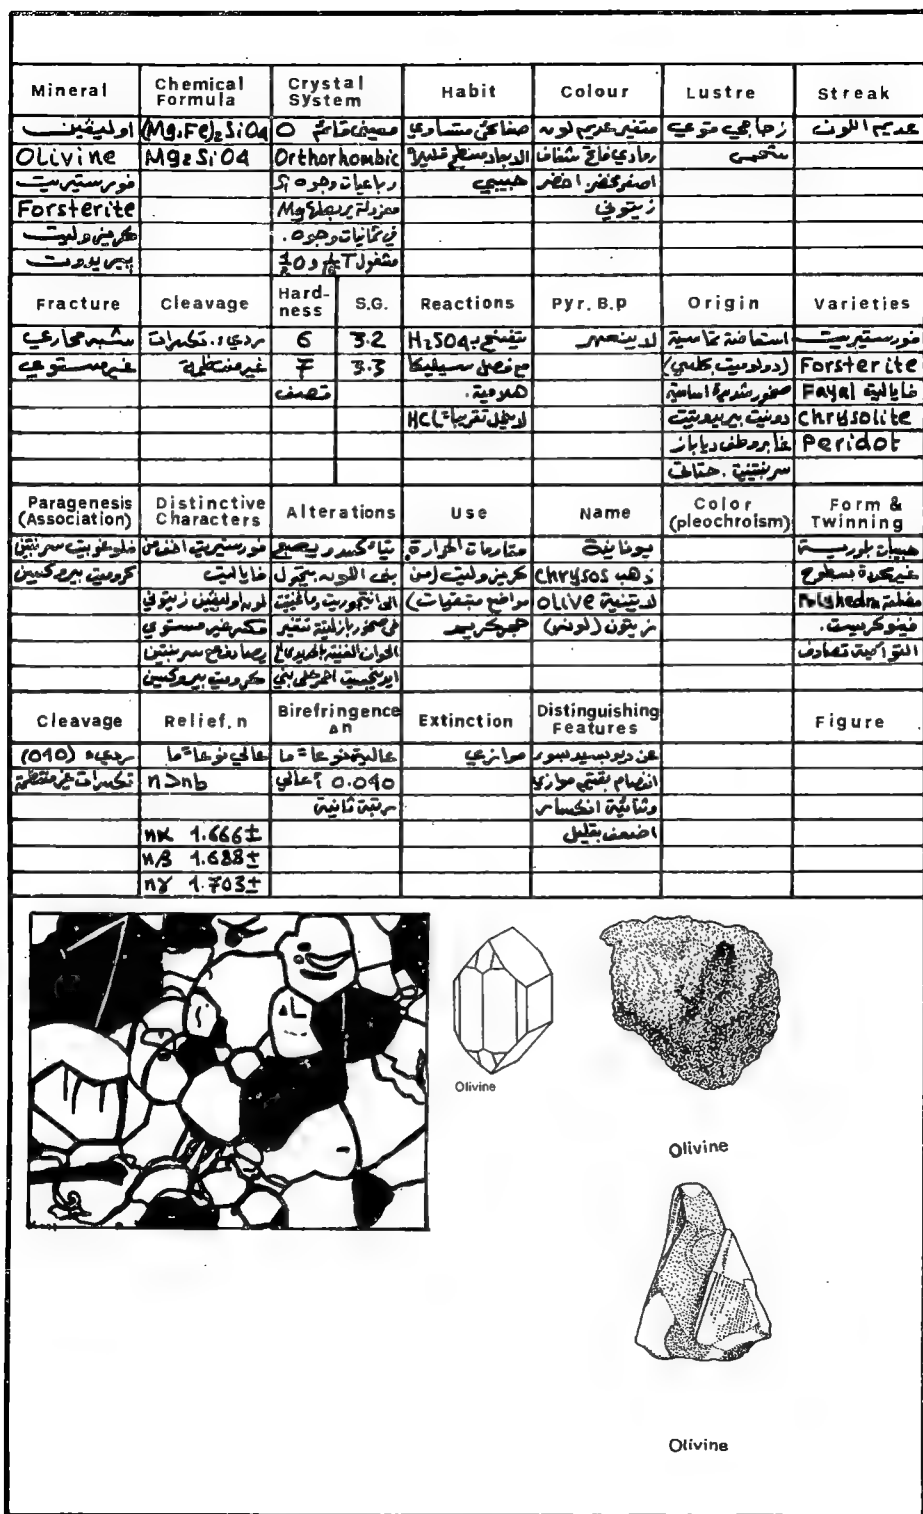 Mineral	Chemical Formula	Crystal System	Habit	Colour	Lustre	Streak
اوليفين	(Mg,Fe)2SiO4	معيني قائم O	صفائحي متساوي	متغير عديم لون	زجاجي قوي	عديم اللون
Olivine	Mg2SiO4	Orthorhombic	الابعاد مسطح قليلا	رمادي فاتح شفاف	شحمي
فورستيريت	رباعيات وجوه Si	حبيبي	اصفر مخضر. اخضر
Forsterite	معزولة يربطها Mg	زيتوني
كريزوليت	في ثمانيات وجوه.
بيريدوت
Fracture	Cleavage	Hardness	S.G.	Reactions	Pyr. B.p	Origin	Varieties
شبه محاري	رديء. تكسرات	6	3.2	يتفسخ بـ H2SO4	لا ينصهر	استحالة تماسية	فورستيريت
غير مستوي	غير منتظمة	7	3.3	مع فصل سيليكا	(دولوميت بكلسي)	Forsterite
قصف	هلامية.	صخور شديدة اساسية	فاياليت Fayal
لا ينحل تقريبا = HCl	دونيت بيريدوتيت	Chrysolite
غابرو طف دياباز	Peridot
سربنتين.
Paragenesis (Association)	Distinctive Characters	Alterations	Use	Name	Color (pleochroism)	Form & Twinning
فلوغوبيت سربنتين	فورستيريت اخف من	يتأكسد ويصبح	مقاومات الحرارة	يونانية	حبيبات بلورية
كروميت بيروكسين	فاياليت	بني اللون يتحول	كريزوليت (من	ذهب Chrysos	غير محددة بسطوح
لون اوليفين زيتوني	مواضع متبقيات)	لاتينية Olive	مضلعة Polyhedra
مكسر غير مستوي	في صخور بازلتية تتغير	حجر كريم	زيتون (لونه)	فينوكريست.
يصادف مع سربنتين	الحواف الغنية بالحديد الى	التوائمية تصادف
كروميت بيروكسين	ايدنجسيت احمر على بني
Cleavage	Relief. n	Birefringence Δn	Extinction	Distinguishing Features	Figure
رديء (010)	عالي نوعا = ما	عالية نوعا = ما	موازي	عن ديوبسيد بسوء
تكسرات غير منتظمة	n>nb	0.040 أعالي	انفصام بقيم موازي
مرتبة ثانية	وثنائية انكسار
nα 1.666±	اضعف بقليل
nβ 1.688±
nγ 1.703±
Olivine
Olivine
Olivine